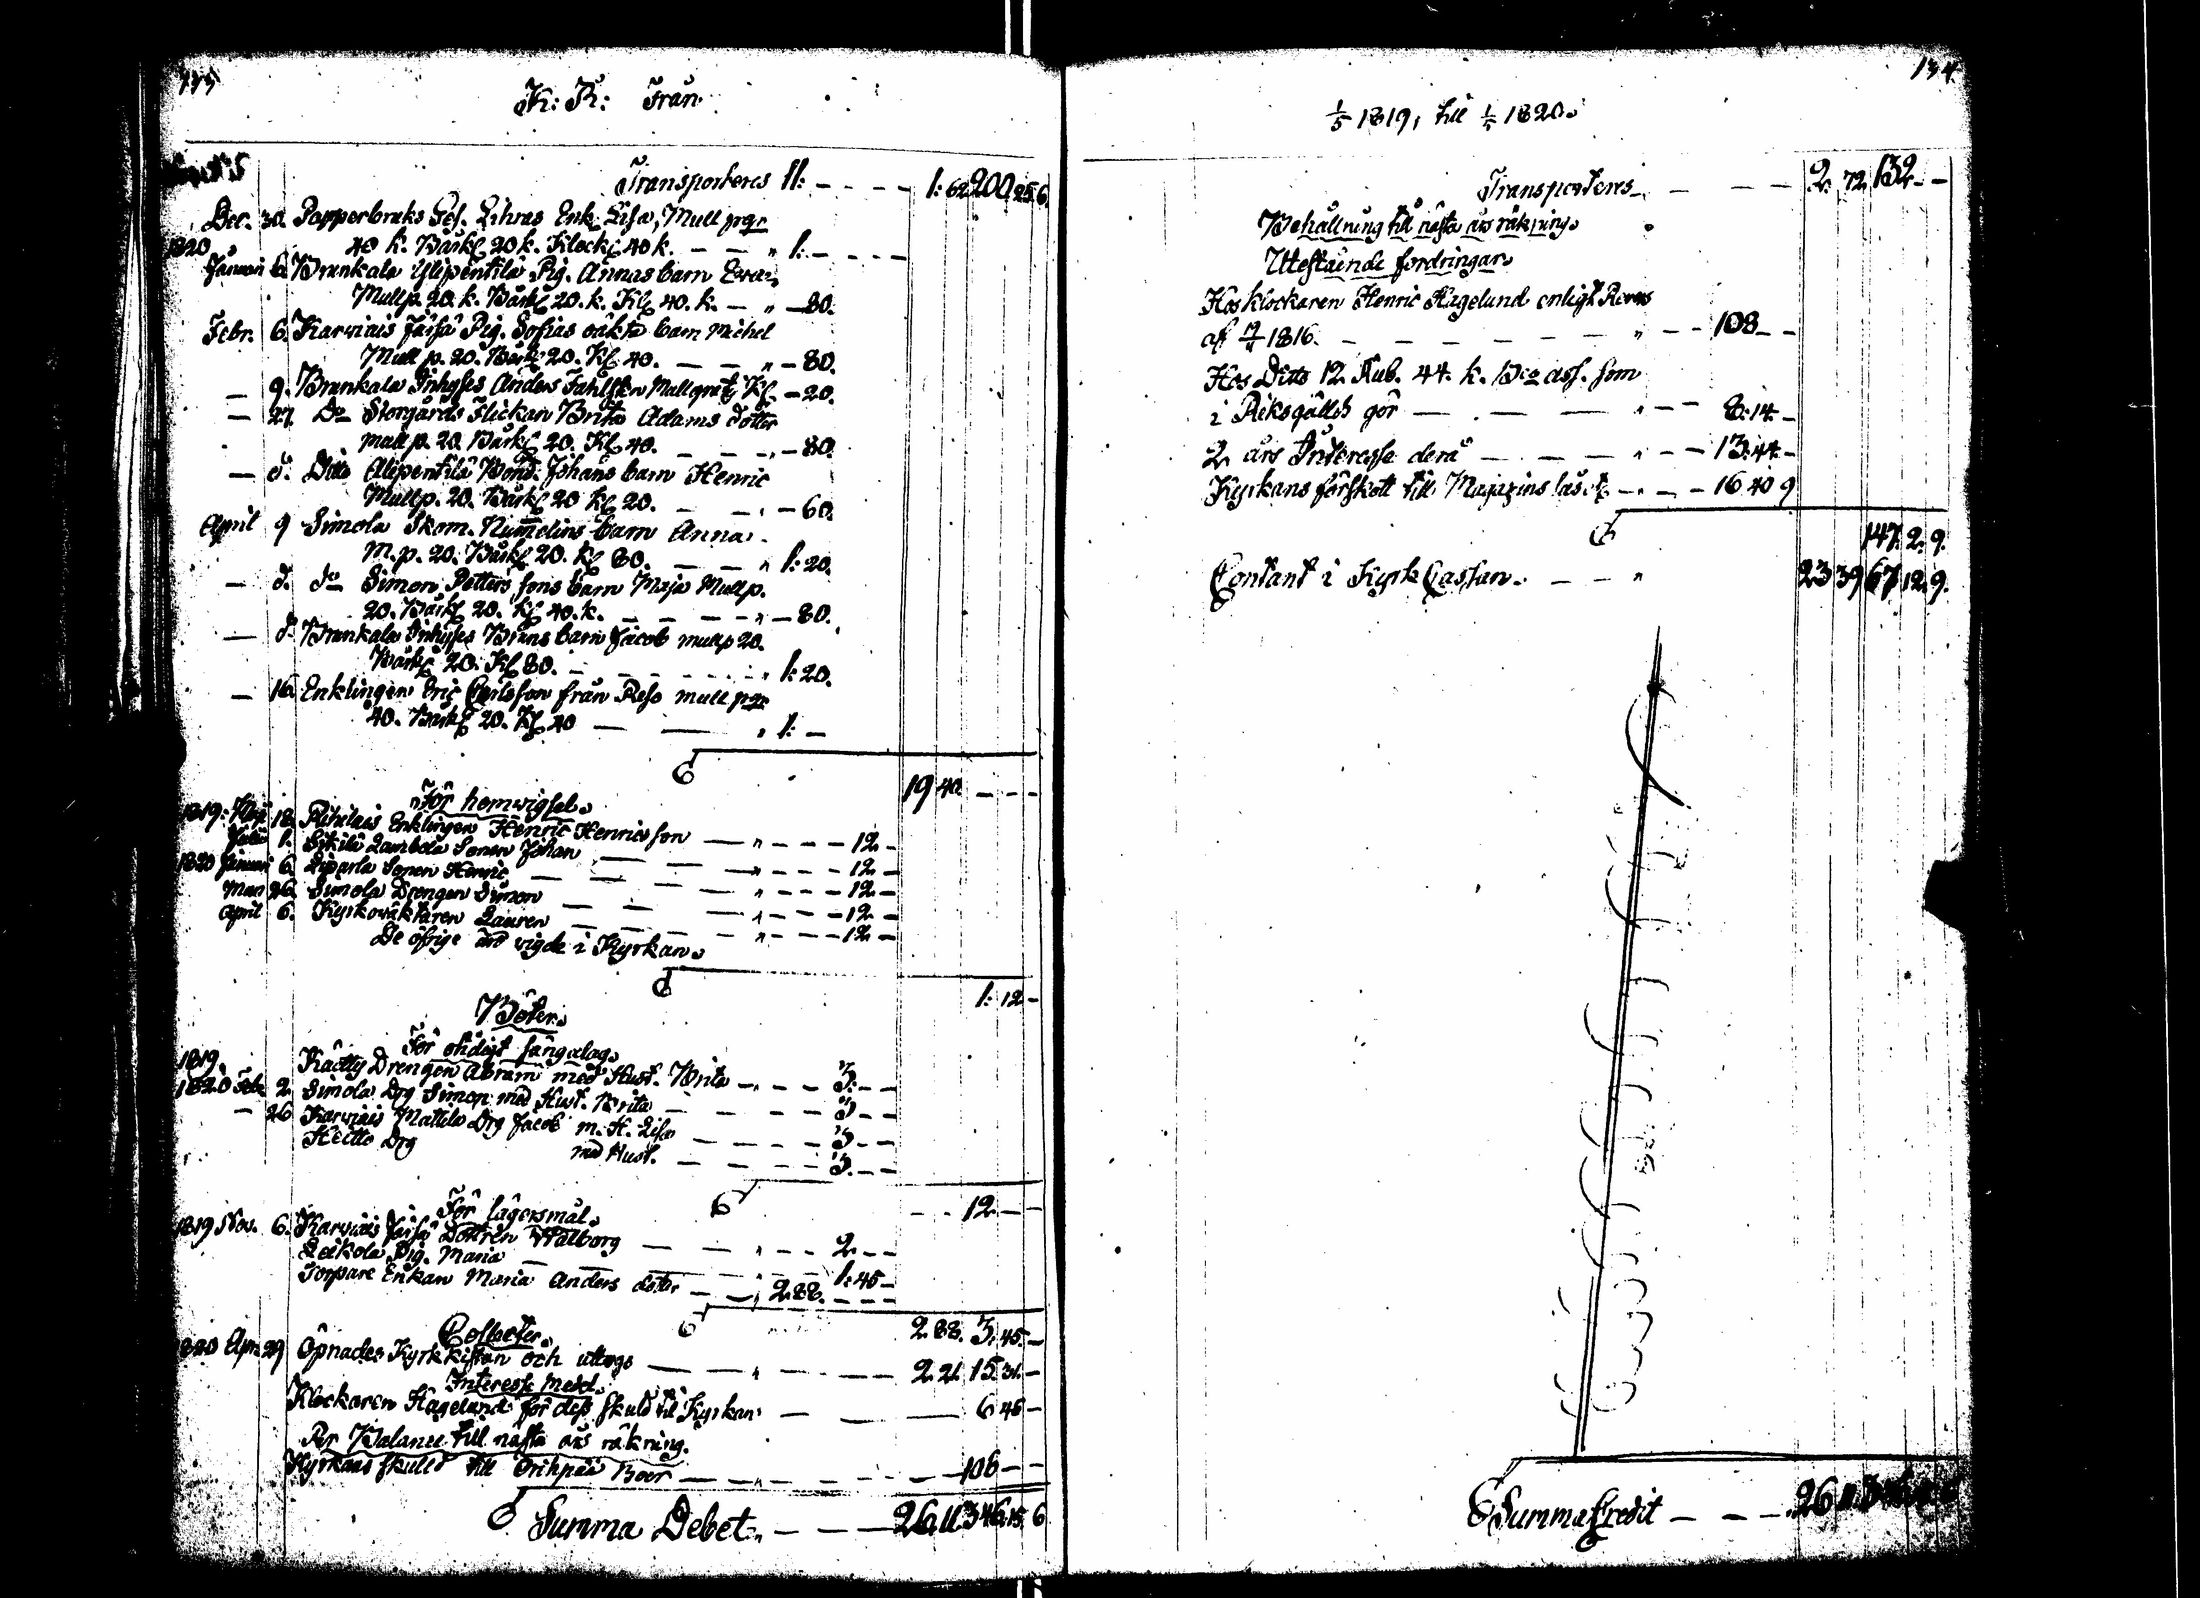 K: R: Från
Transporteres 11: 1: 62 200 25 6
Dec. 30. Papperbruks Ges. Enk. Lisa, Mull pgr
40 k. Bårkl 20 k. Klock 40 k. 1:
1820
Januari 6. Brunkala Ylipentilä Pig. Annas barn
Mull p. 20. k. Bårkl 20. k. Kl. 40. k. 80.
Febr. 6. Karviais Jaisä Pig. Sofias oäkta barn Michel
Mull p. 20. Bårkl 20. Kl. 40. 80.
9. Brunkala Inhyses Anders Mull Kl. 20.
27. Do Storgårds Flickan Brita Adams dotter
mull p. 20. Bårkl 20. Kl 40. 80.
d. Ditto Alipentilä Bond. Johans barn Henric
Mull p. 20. Bårkl 20 Kl 20. 60.
April 9 Simola Skom. Numelins barn Anna
M. p. 20. Bårkl 20. Kl 80. 1: 20.
d. do Simon Petters sons barn Maja Mull p.
20. Bårkl 20. Kl 40. k. 80.
d. Brunkala Inhyses Bruns barn Jacob mull p 20.
Bårkl 20. Kl 80. 1: 20.
16. Enklingen Eric Carlsson från Reso mull
40. Bårkl 20. Kl 40 1:
19 40
För hemwigsel
1819: Maj 18. Enklingen Henric Henricsson 12
1. Lambola Sonen Johan 12
1820 Januari 6. Liparla Sonen Henric 12
Mars 26. Simola Drengen Simon 12
April 6. Kyrkowäktaren Lauren 12
De öfrige äro vigde i Kyrkan
1: 12
Böter
För otidigt sängalag
1819. Drengen Abram med Hust. Brita 3.
1820 Febr. 2. Simola Drg Simon med Hust. Brita 3
26 Karviais Mattila Drg Jacob m. H. Lisa 3
Heitto Drg med Hust. 3.
12
För lägersmål
1819 Nov. 6. Karviais Jaisä Dottren Walborg 2
Leikola Pig. Maria 1: 45
Torpare Enkan Maria Anders dotter 2 88.
2 88. 3: 45
Collecter
1820 Apr. 29 Öpnades Kyrkkistan och uttogs 2 21 15 31
Interesse Med.
Klockaren Hagelund för dess skuld til Kyrkan 6 45
Per Balance till nästa års räkning.
Kyrkans skuld till Orihpää Boer 106
Summa Debet 26 11 346 15 6
134
1/5 1819, till 1/5 1820
Transporteres 2. 72 132
Behållning till nästa års räkning
Utestående fordringar
Hos klockaren Henric Hagelund enligt Revers
af 1816. 108
Hos Ditto 12. Rub. 44. k. Bco ass. som
i Riksgälds gör 8: 14
2 års Interesse derå 13: 44
Kyrkans förskott till Magazins 16 40 9
147. 2. 9.
Contant i Kyrk Cassan 23 39 67 12. 9.
Summa Credit 26 11